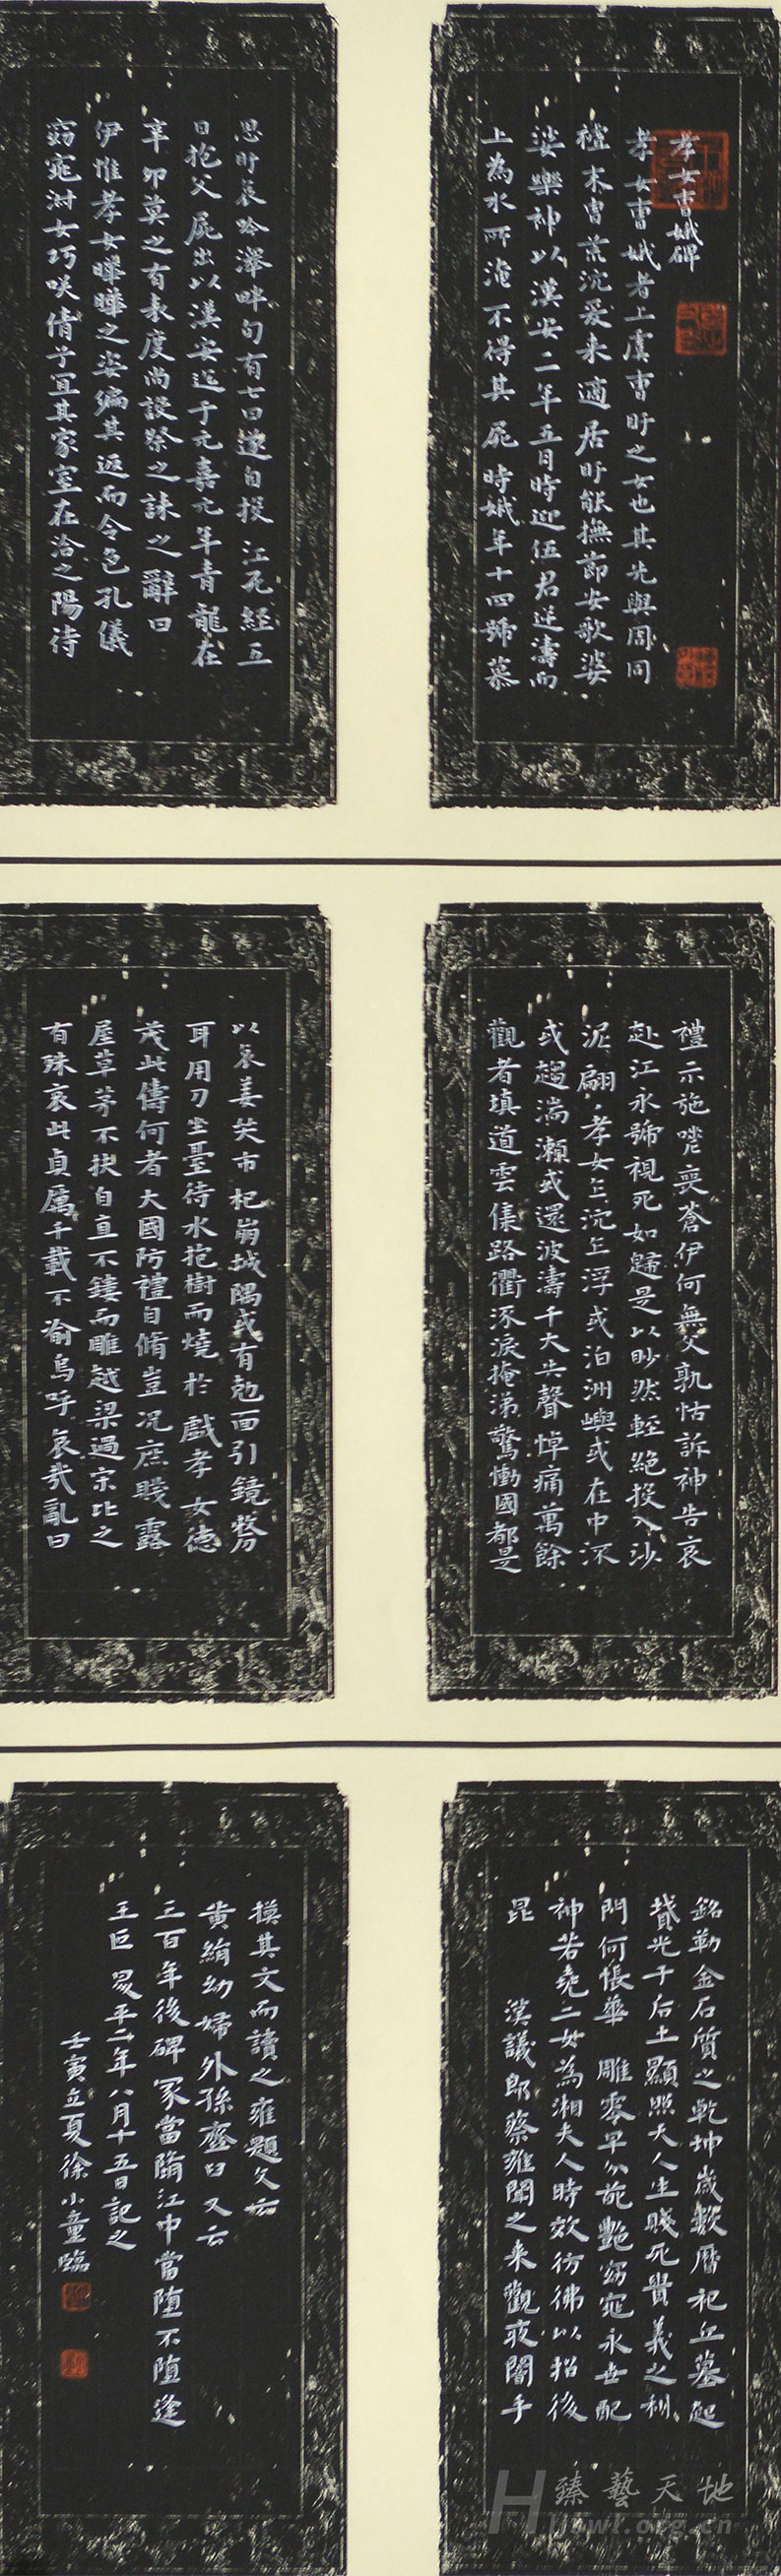 孝女曹娥碑
孝女曹娥者上虞曹盱之女也其先與周同
祖末胄荒沉爰来適居盱能撫節安歌婆
娑樂神以漢安二年五月時迎伍君逆濤而
上為水所淹不得其屍時娥年十四號慕
思盱哀吟澤畔旬有七日遂自投江死経五
日抱父屍出以漢安迄于元嘉元年青龍在
辛卯莫之有表度尚設祭之誄之辭曰
伊惟孝女曄曄之姿偏其返而令色孔儀
窈窕淑女巧咲倩兮宜其家室在洽之陽待
禮示施嗟喪蒼伊何無父孰怙訴神告哀
赴江永號視死如歸是以眇然輕絕投入沙
泥翩〻孝女乍沉乍浮或泊洲嶼或在中流
或趨湍瀬或還波濤千夫失聲悼痛萬餘
觀者填道雲集路衢泳淚掩涕驚慟國都是
以哀姜哭市杞崩城隅或有剋面引鏡剺
耳用刀坐臺待水抱樹而燒於戲孝女德
茂此儔何者大國防禮自脩豈况庶賤露
屋草茅不扶自直不鏤而雕越梁過宋比之
有殊哀此貞厲千載不渝烏呼哀哉亂曰
銘勒金石質之乾坤歲數曆祀丘墓起
墳光于后土顯照天人生賤死貴義之利
門何悵華雕零早分葩艷窈窕永世配
神若堯二女為湘夫人時效彷彿以招後
昆
漢議郎蔡雍聞之来觀夜闇手
摸其文而讀之雍題文云
黄絹幼婦外孫齏臼又云
三百年後碑冢當墮江中當墮不墮逢
王叵昪平二年八月十五日記之
壬寅立夏徐小童臨
臻藝天地